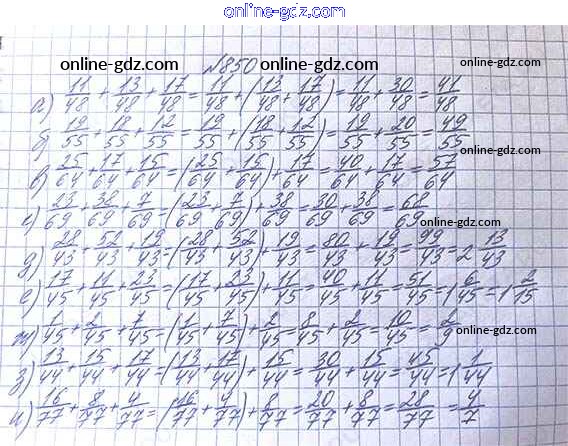 online-gdz.com
online-gdz.com №850 online-gdz.com
а) 11/48 + 13/48 + 17/48 = 11/48 + (13/48 + 17/48) = 11/48 + 30/48 = 41/48
online-gdz.com
б) 19/55 + 18/55 + 12/55 = 19/55 + (18/55 + 12/55) = 19/55 + 20/55 = 49/55
online-gdz.com
в) 25/64 + 17/64 + 15/64 = (25/64 + 15/64) + 17/64 = 40/64 + 17/64 = 57/64
г) 23/69 + 38/69 + 7/69 = (23/69 + 7/69) + 38/69 = 30/69 + 38/69 = 68/69
online-gdz.com
д) 28/43 + 52/43 + 19/43 = (28/43 + 52/43) + 19/43 = 80/43 + 19/43 = 99/43 = 2 13/43
е) 17/45 + 11/45 + 23/45 = (17/45 + 23/45) + 11/45 = 40/45 + 11/45 = 51/45 = 1 6/45 = 1 2/15
ж) 1/45 + 2/45 + 7/45 = (1/45 + 7/45) + 2/45 = 8/45 + 2/45 = 10/45 = 2/9
з) 13/44 + 15/44 + 17/44 = (13/44 + 17/44) + 15/44 = 30/44 + 15/44 = 45/44 = 1 1/44
и) 16/77 + 8/77 + 4/77 = (16/77 + 4/77) + 8/77 = 20/77 + 8/77 = 28/77 = 4/7